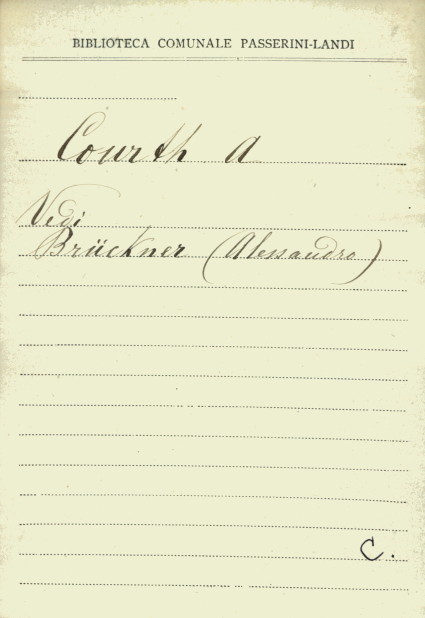 BIBLIOTECA COMUNALE PASSERINI-LANDI
Courth A
Vedi
Brückner (Alessandro)
C.